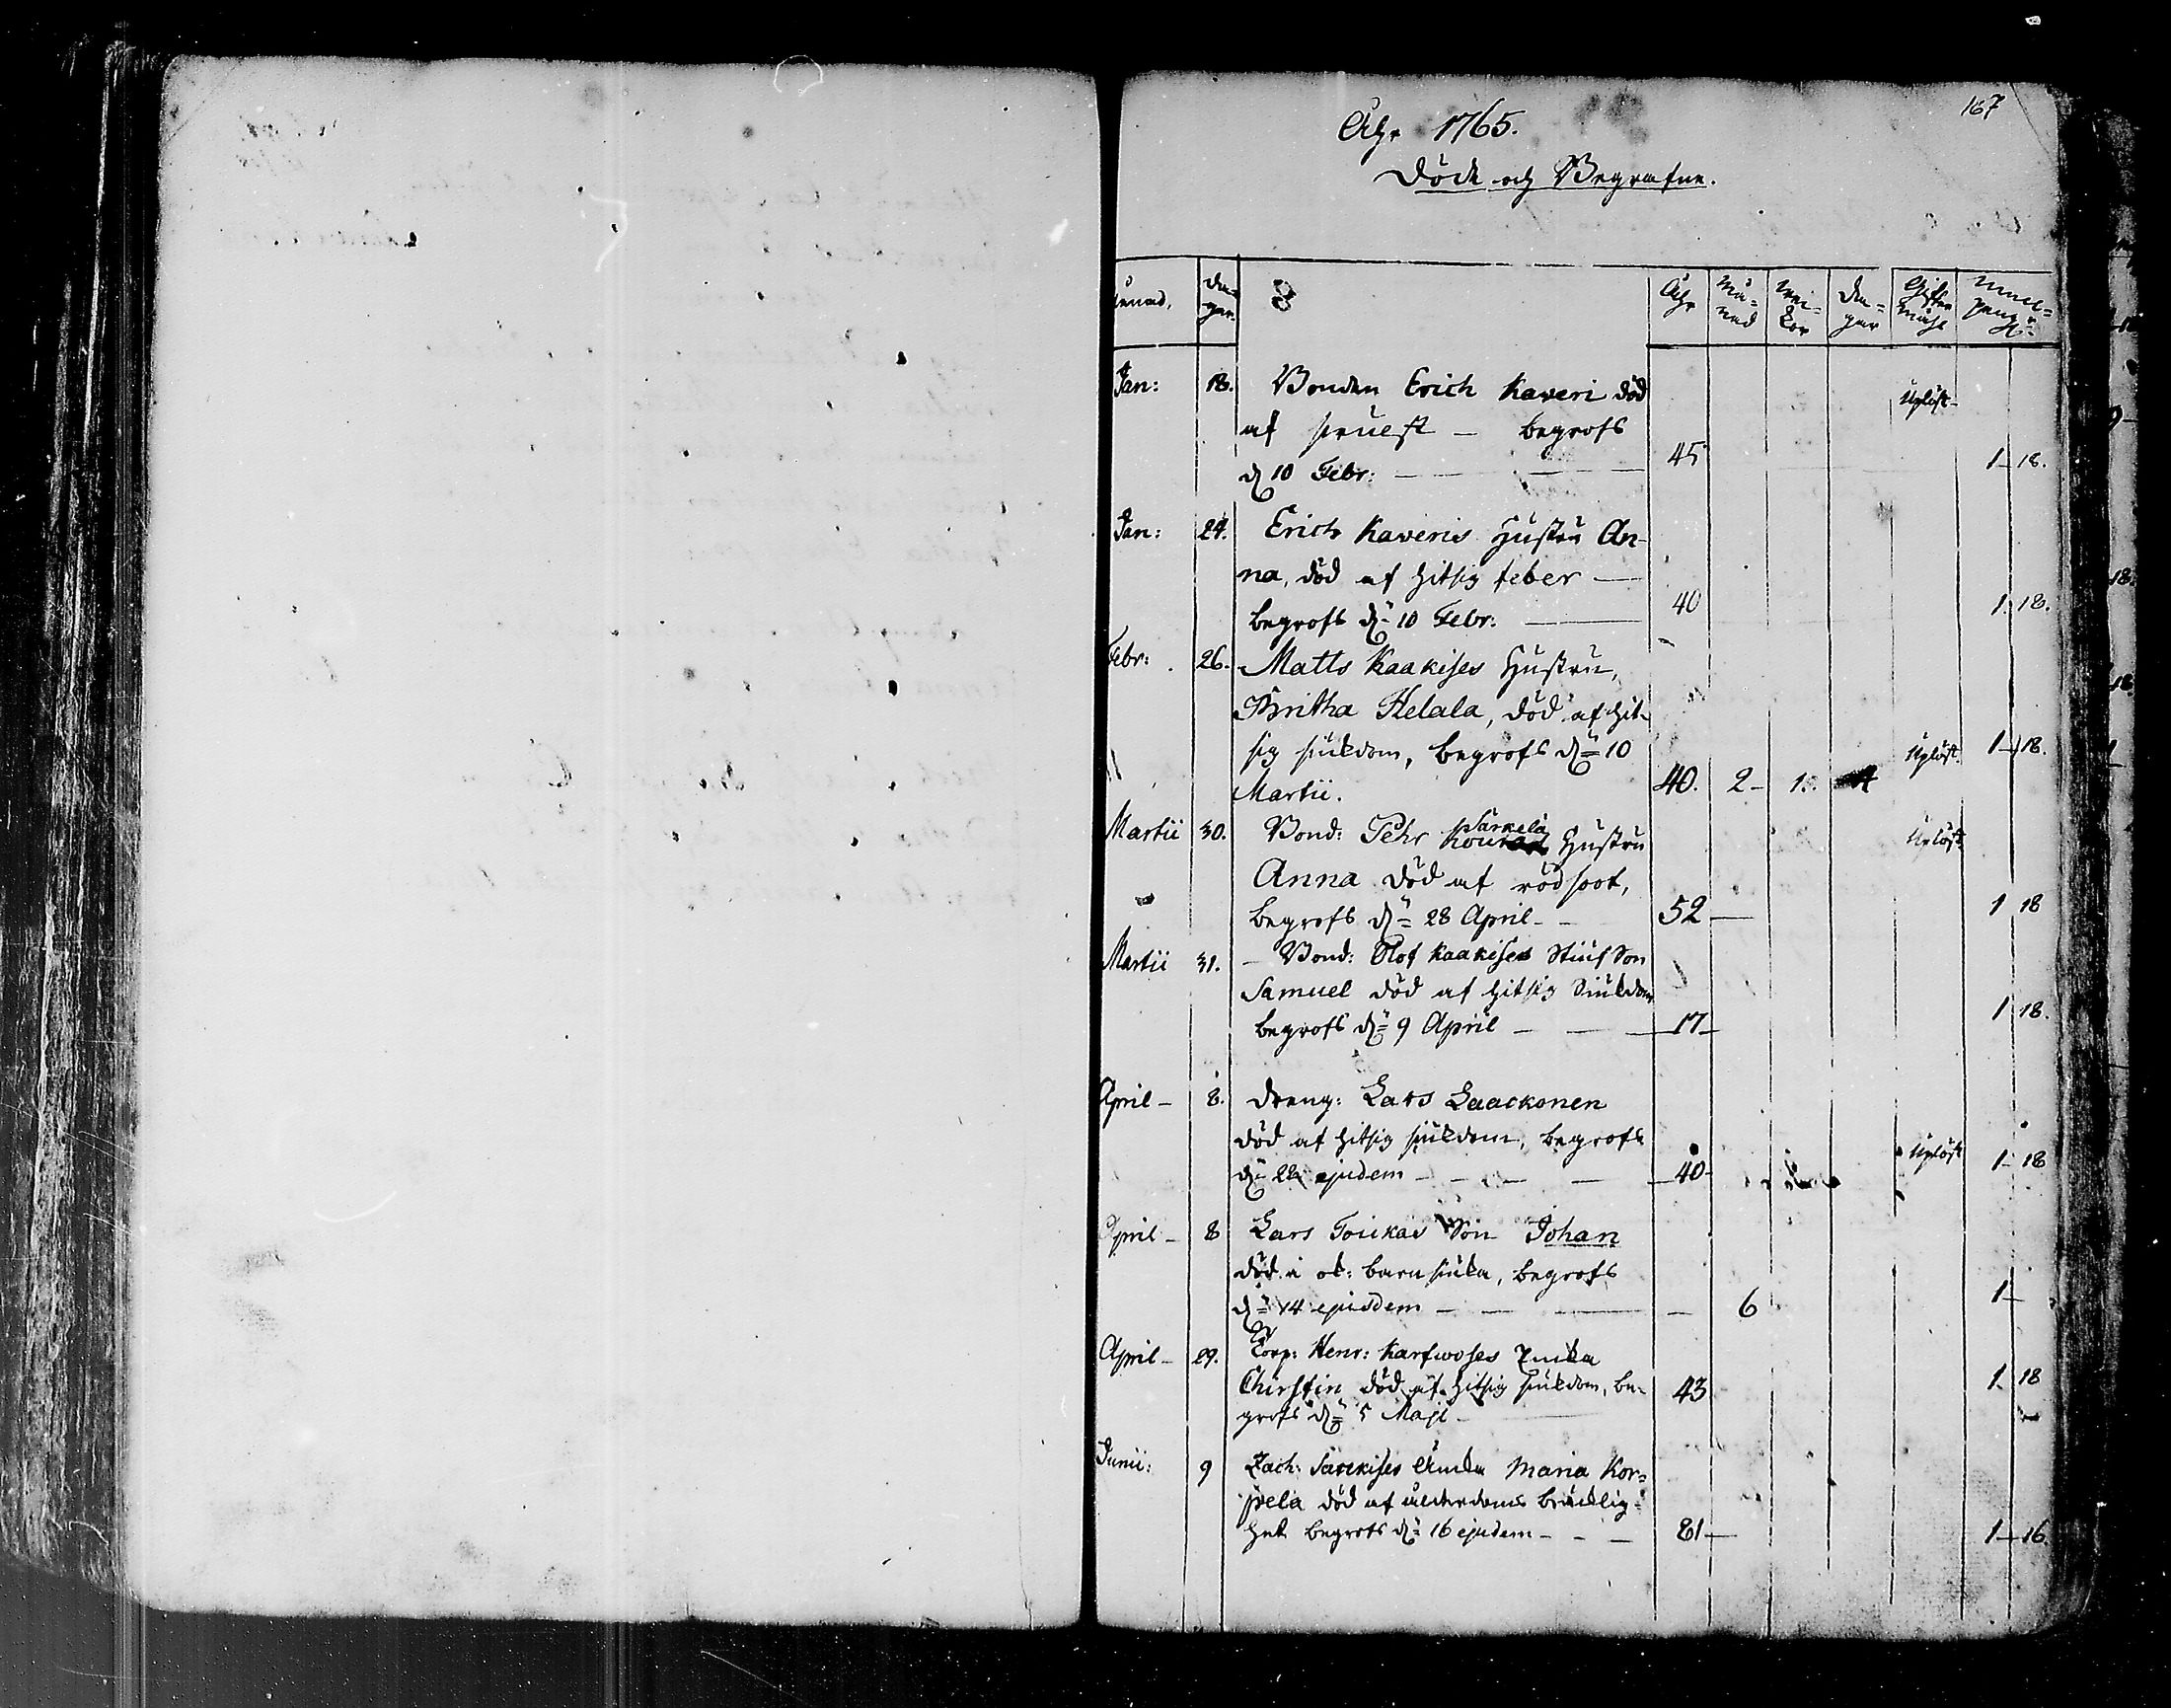 167
Åhr 1765.
Döde och Begrafne.
Månad. Da=gar. Åhr Må=nad Wei=kor Da=gar Gifter måhl
Jan: 18. Bonden Erich Kaveri död Uplöst
af begrofs
d 10 Febr: 45 1 18.
Jan: 24. Erich Kaveris Hustru An-
na, död af hitsig feber
begrofs dn 10 Febr: 40 1 18.
Febr: 26. Matts Kaakises Hustru,
Britha Helala, död af hit-
sig siukdom, begrofs dn 10 Uplöst 1 18.
Martii. 40. 2 1.
Martii 30. Bond: Pehr Särkelä Hustru Uplöst
Anna död af rödsoot,
begrofs dn 28 April 52 1 18
Martii 31. Bond: Olof Kaakises Stiuf Son
Samuel död af hitsig Siukdom
begrofs dn 9 April 17 1 18.
April 8. Dreng: Lars Laackonen
död af hitsig siukdom, begrofs
dn ejusdem 40 Uplöst 1 18
April 8 Lars Toukas Son Johan
död i ok: barnsiuka, begrofs
dn 14 ejusdem 6 1
April 29. Corp: Henr: Karfwoses Enka
Chirstin död af hitsig siukdom, be- 43 1 18
grofs dn 5 Maji
Junii: 9 Zach: Sarckises Enka Maria Kor=
pela död af ålderdoms bräcklig=
het begrofs dn 16 ejudem 81 1 16.